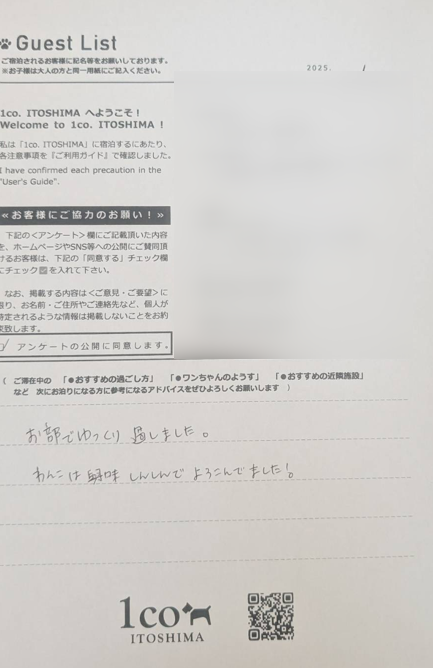 Guest List
ご宿泊されるお客様に記名等をお願いしております。
※お子様は大人の方と同一用紙にご記入ください。
2025. /
1co. ITOSHIMA へようこそ！
Welcome to 1co. ITOSHIMA !
私は「1co. ITOSHIMA」に宿泊するにあたり、
各注意事項を『ご利用ガイド』で確認しました。
I have confirmed each precaution in the
"User's Guide".
≪お客様にご協力のお願い！≫
下記の＜アンケート＞欄にご記載頂いた内容
を、ホームページやSNS等への公開にご賛同頂
けるお客様は、下記の「同意する」チェック欄
にチェック☑を入れて下さい。
なお、掲載する内容は＜ご意見・ご要望＞に
限り、お名前・ご住所やご連絡先など、個人が
特定されるような情報は掲載しないことをお約
束致します。
アンケートの公開に同意します。
（ ご滞在中の 「●おすすめの過ごし方」 「●ワンちゃんのようす」 「●おすすめの近隣施設」
など 次にお泊りになる方に参考になるアドバイスをぜひよろしくお願いします ）
お部でゆっくり 過しました。
わんこは 興味 しんしんで よろこんでました！
1co
ITOSHIMA